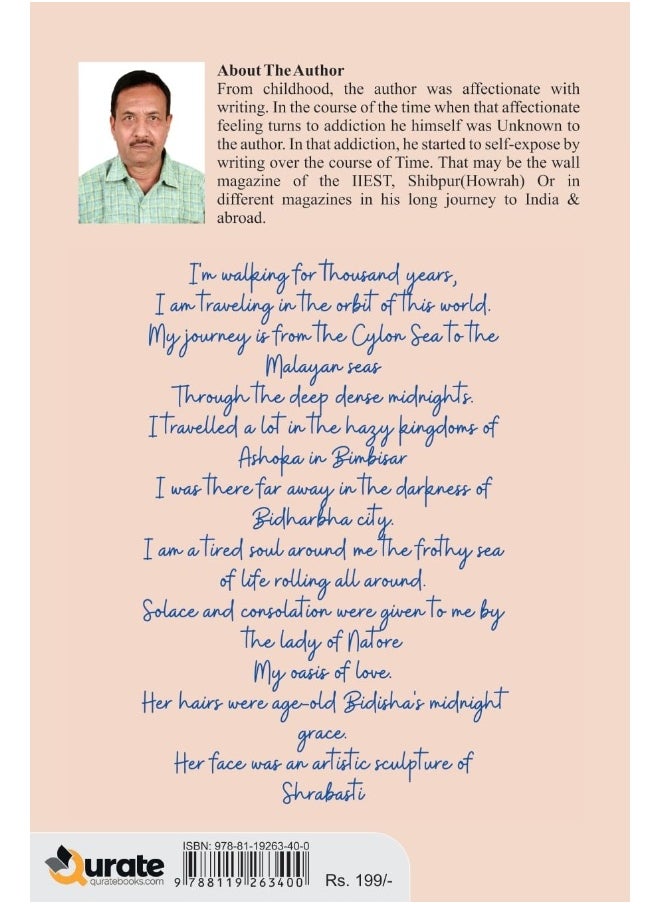 About The Author
From childhood, the author was affectionate with
writing. In the course of the time when that affectionate
feeling turns to addiction he himself was Unknown to
the author. In that addiction, he started to self-expose by
writing over the course of Time. That may be the wall
magazine of the IIEST, Shibpur(Howrah) Or in
different magazines in his long journey to India &
abroad.
I'm walking for thousand years,
I am traveling in the orbit of this world.
My journey is from the Cylon Sea to the
Malayan seas
Through the deep dense midnights.
I travelled a lot in the hazy kingdoms of
Ashoka in Bimbisar
I was there far away in the darkness of
Bidharbha city.
I am a tired soul around me the frothy sea
of life rolling all around.
Solace and consolation were given to me by
the lady of Natore
My oasis of love.
Her hairs were age-old Bidisha's midnight
grace.
Her face was an artistic sculpture of
Shrabasti
Qurate
quratebooks.com
ISBN: 978-81-19263-40-0
9 788119 263400
Rs. 199/-